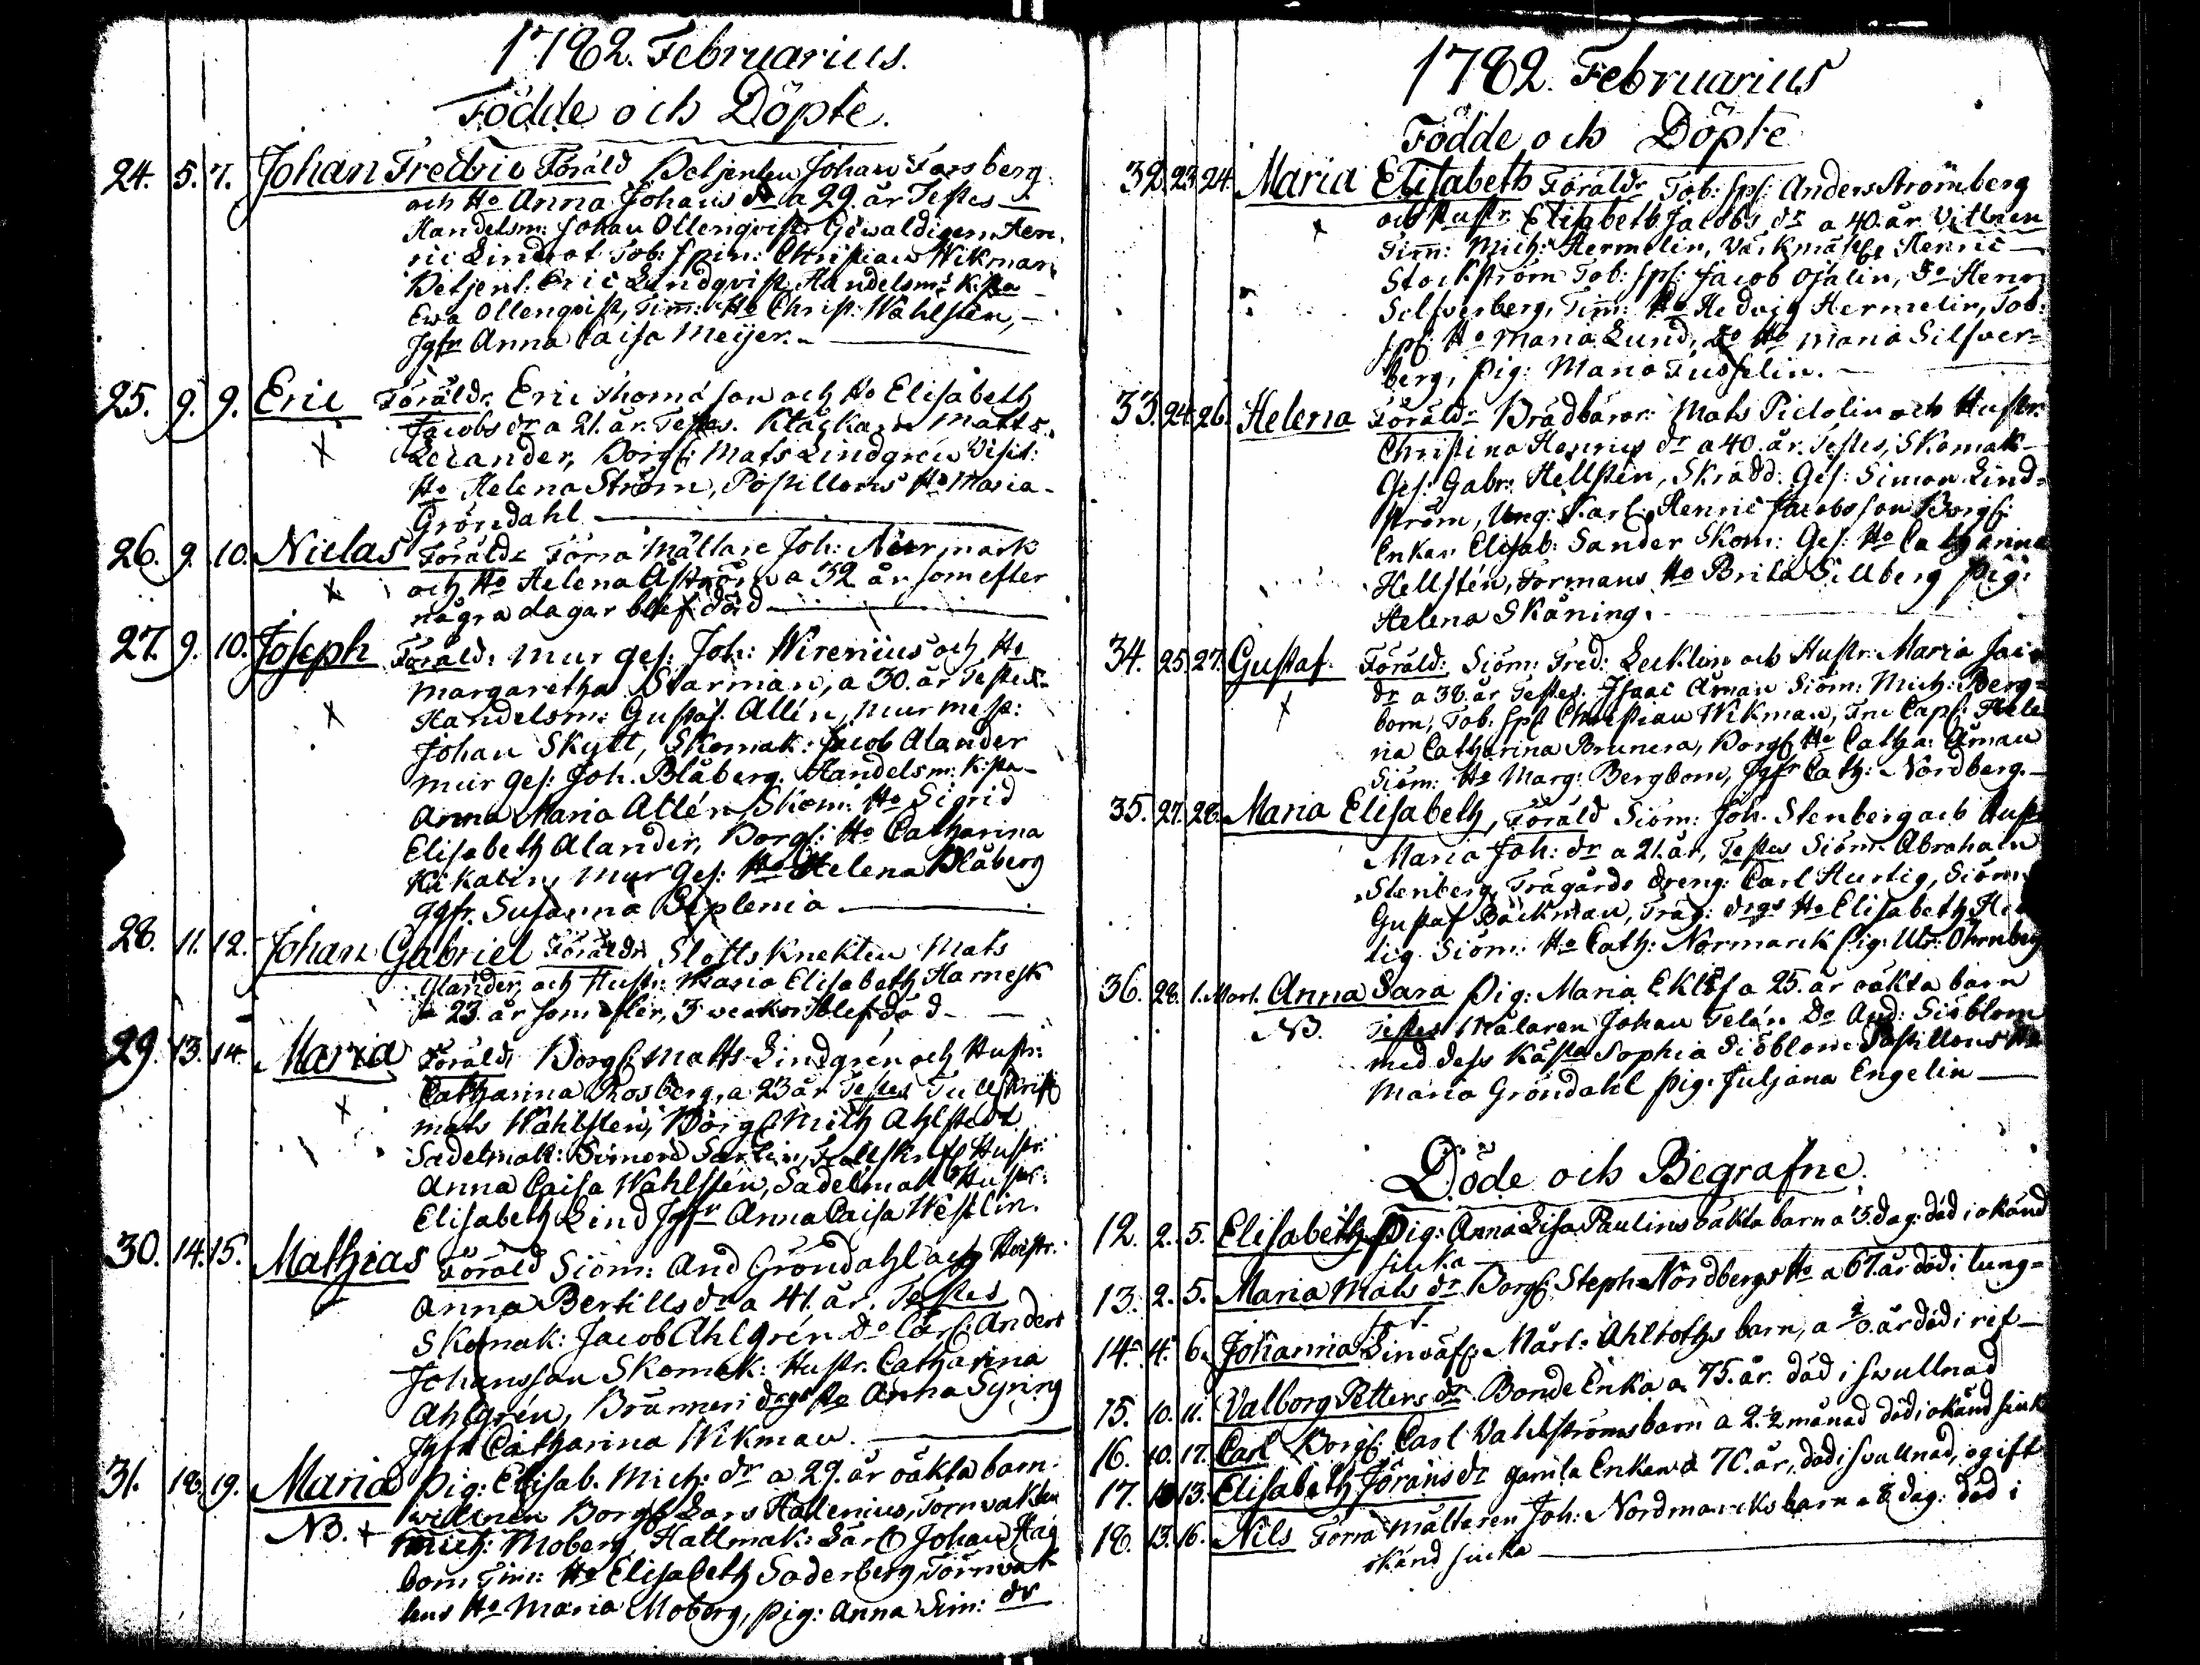 1782. Februarius.
Födde och Döpte.
24. 5. 7. Johan Fredric Föräld Betjenten Johan Forsberg
och Ho Anna Johans dr a 29. år Testes
Handelsm: Johan Ollenqvist, Gewaldigern Hen
ric Lindrot Tob: Spin: Christian Wikman
Betjent. Eric Lindqvist, Handelsm: K:sta
Ewa Ollenqvist, Tim: Ho Christ: Wahlsten,
Jgfr Anna Caisa Meijer.
25. 9. 9. Eric Föräldr. Eric Thomasson och Ho Elisabeth
Jacobs dr a 21. år. Testes. Klåckarn Matts
Lelander, Borgs: Mats Lindgren Visit:
Ho Helena Ström, Postillions Ho Maria
Gröndahl
26. 9. 10. Niclas Föräldr Förra Mältare Joh: Normark
och Ho Helena Åström a 32 år som efter
några dagar blef död
27. 9. 10. Joseph Föräld: Mur ges: Joh: Wirenius och Ho
Margaretha Starman, a 30. år Testes
Handelsm: Gustaf Allén, Mur mest:
Johan Skytt, Skomak: Jacob Alander
Mur ges: Joh. Blåberg. Handelsm: K:sta
Anna Maria Allén, Skom: Ho Sigrid
Elisabeth Alander, Borgs: Ho Catharina
Kikalin, Mur Ges: Ho Helena Blåberg
Jgfr. Susanna Deplenia
28. 11. 12. Johan Gabriel Föräldr Slotts Knekten Mats
och Hustr: Maria Elisabeth Harnesk
a 23. år som efter 3 weckor blef död
29. 13. 14. Maria Föräldr Borgs: Matts Lindgrén och Hustr:
Catharina Rosberg, a 23 år Testes Tullskrif
Mats Wahlstén, Borgs: Mich Ahlstedt
Sadelmak: Simon Sarlin, Tullskrifs Hustr:
Anna Caisa Wahlstén, Sadelmak Hustr:
Elisabeth Lind Jgfr Anna Caisa Westlin.
30. 14. 15. Mathias Föräld Siöm: And Gröndahl och Hustr:
Anna Bertills dr a 41. år. Testes
Skomak: Jacob Ahlgrén Do Lärl: Anders
Johansson Skomak: Hustr. Catharina
Ahlgrén, Bränneri drgs Ho Anna Syring
Jgfr Catharina Wikman.
31. 18. 19. Maria Pig: Elisab. Mich: dr a 29. år oäkta barn.
NB. + wittnen Borgs Lars Hallenius, Tornvakten
Mich: Moberg, Hattmak: Lärl Johan Hag
bom Tim: Ho Elisabeth Soderberg Tornvak
tens Ho Maria Moberg, pig: Anna Sim: dr
1782. Februarius
Födde och Döpte
32. 23. 24. Maria Elisabeth Föräldr Tob: sps: Anders Strömberg
och Hustr. Elisabeth Jacobs dr a 40. år. Vitnen
Tim: Mich: Hermelin, Värkmäst: Henric
Stockström Tob: sps: Jacob Ojalin, Do Henr
Silfverberg, Tim: Ho Hedvig Hermelin, Tob:
sps: Ho Maria Lund, Do Ho Maria Silfver=
berg, pig: Maria Tusselin.
33. 24. 26. Helena Föräldr Brädbärar: Mats Pidolin och Hustr:
Christina Henrics dr a 40. år. Testes, Skomak
Ges: Gabr: Hellstén, Skrädd: Ges: Simon Lind=
ström, Ung: Karl: Henric Jacobsson Borgs:
Enkan Elisab: Sander Skom: Ges: Ho Catharina
Hellstén, Formans Ho Brita Sillberg pig:
Helena Skåning.
34. 25. 27. Gustaf Föräld: Siöm: Fred: Lecklin och Hustr: Maria Jac
dr a 38. år Testes. Isaac Åman Siöm: Mich: Berg=
bom, Tob: sps Christian Wikman, Fru Capt: Hele
na Catharina Brunera, Borgs Ho Catha: Åman
Siöm: Ho Marg: Bergbom, Jgfr Cath: Nordberg.
35. 27. 28. Maria Elisabeth, Föräld Siöm: Joh. Stenberg och Hust
Maria Joh: dr a 21. år, Testes Siöm: Abraham
Stenberg, Trägårds dreng: Carl Hurtig, Siöm:
Gustaf Bäckman, Träg: drgs Ho Elisabeth Hur
tig Siöm: Ho Cath: Normarck Pig: Ulr: Öhrnberg
36. 28. 1. Mart. Anna Sara Pig: Maria Eklöf a 25. år oäkta barn
NB. Testes Målaren Johan Telén Do And: Siöblom
med dess Kästa Sophia Siöblom Postillons Ho
Maria Gröndahl pig: Juliana Engelin
Döde och Begrafne.
12. 2. 5. Elisabeth Pig: Anna Lisa Paulins oäkta barn a 15. dag: död i okänd
siuka
13. 2. 5. Maria Mats dr Borgs: Steph: Nordbergs Ho a 67. år död i lung=
sot.
14. 4. 6. Johanna Linväf: Märt: Ahlroths barn, a år död i ref
15. 10. 11. Valborg Petters dr Bonde Enka a 75. år. död i swullnad
16. 10. 17. Carl Borgs: Carl Vahlströms barn a 2. 1/2 månad död i okänd siuk
17. 13. Elisabeth Jörans dr gamla Enkan a 70. år, död i svullnad, ogift
18. 13. 16. Nils Förra Mältaren Joh: Nordmarcks barn a 8 dag: död i
okänd siuka